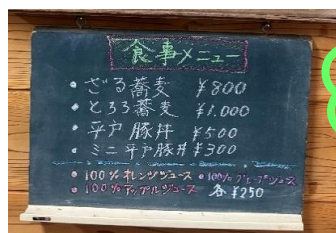 食事メニュー
• ざる蕎麦 ¥800
• とろろ蕎麦 ¥1.000
• 平戸豚丼 ¥500
• ミニ平戸豚丼 ¥300
• 100%オレンジジュース • 100%グレープジュース
• 100%アップルジュース 各 ¥250